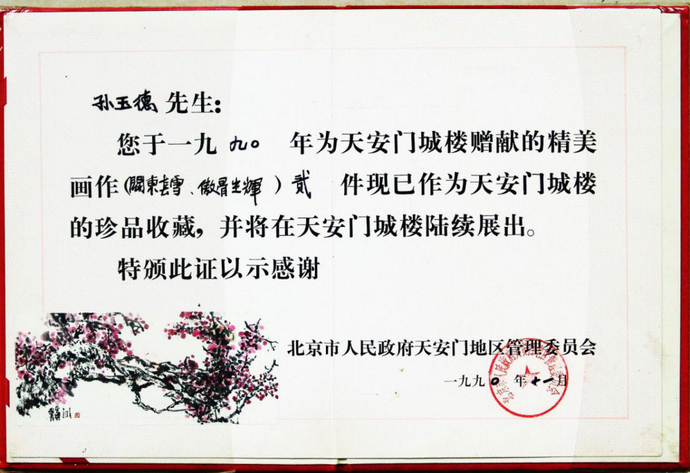 孙玉德 先生：
您于一九九〇 年为天安门城楼赠献的精美
画作（關東瑞雪、傲骨生輝）贰 件现已作为天安门城楼
的珍品收藏，并将在天安门城楼陆续展出。
特颁此证以示感谢
北京市人民政府天安门地区管理委员会
一九九〇 年十一月